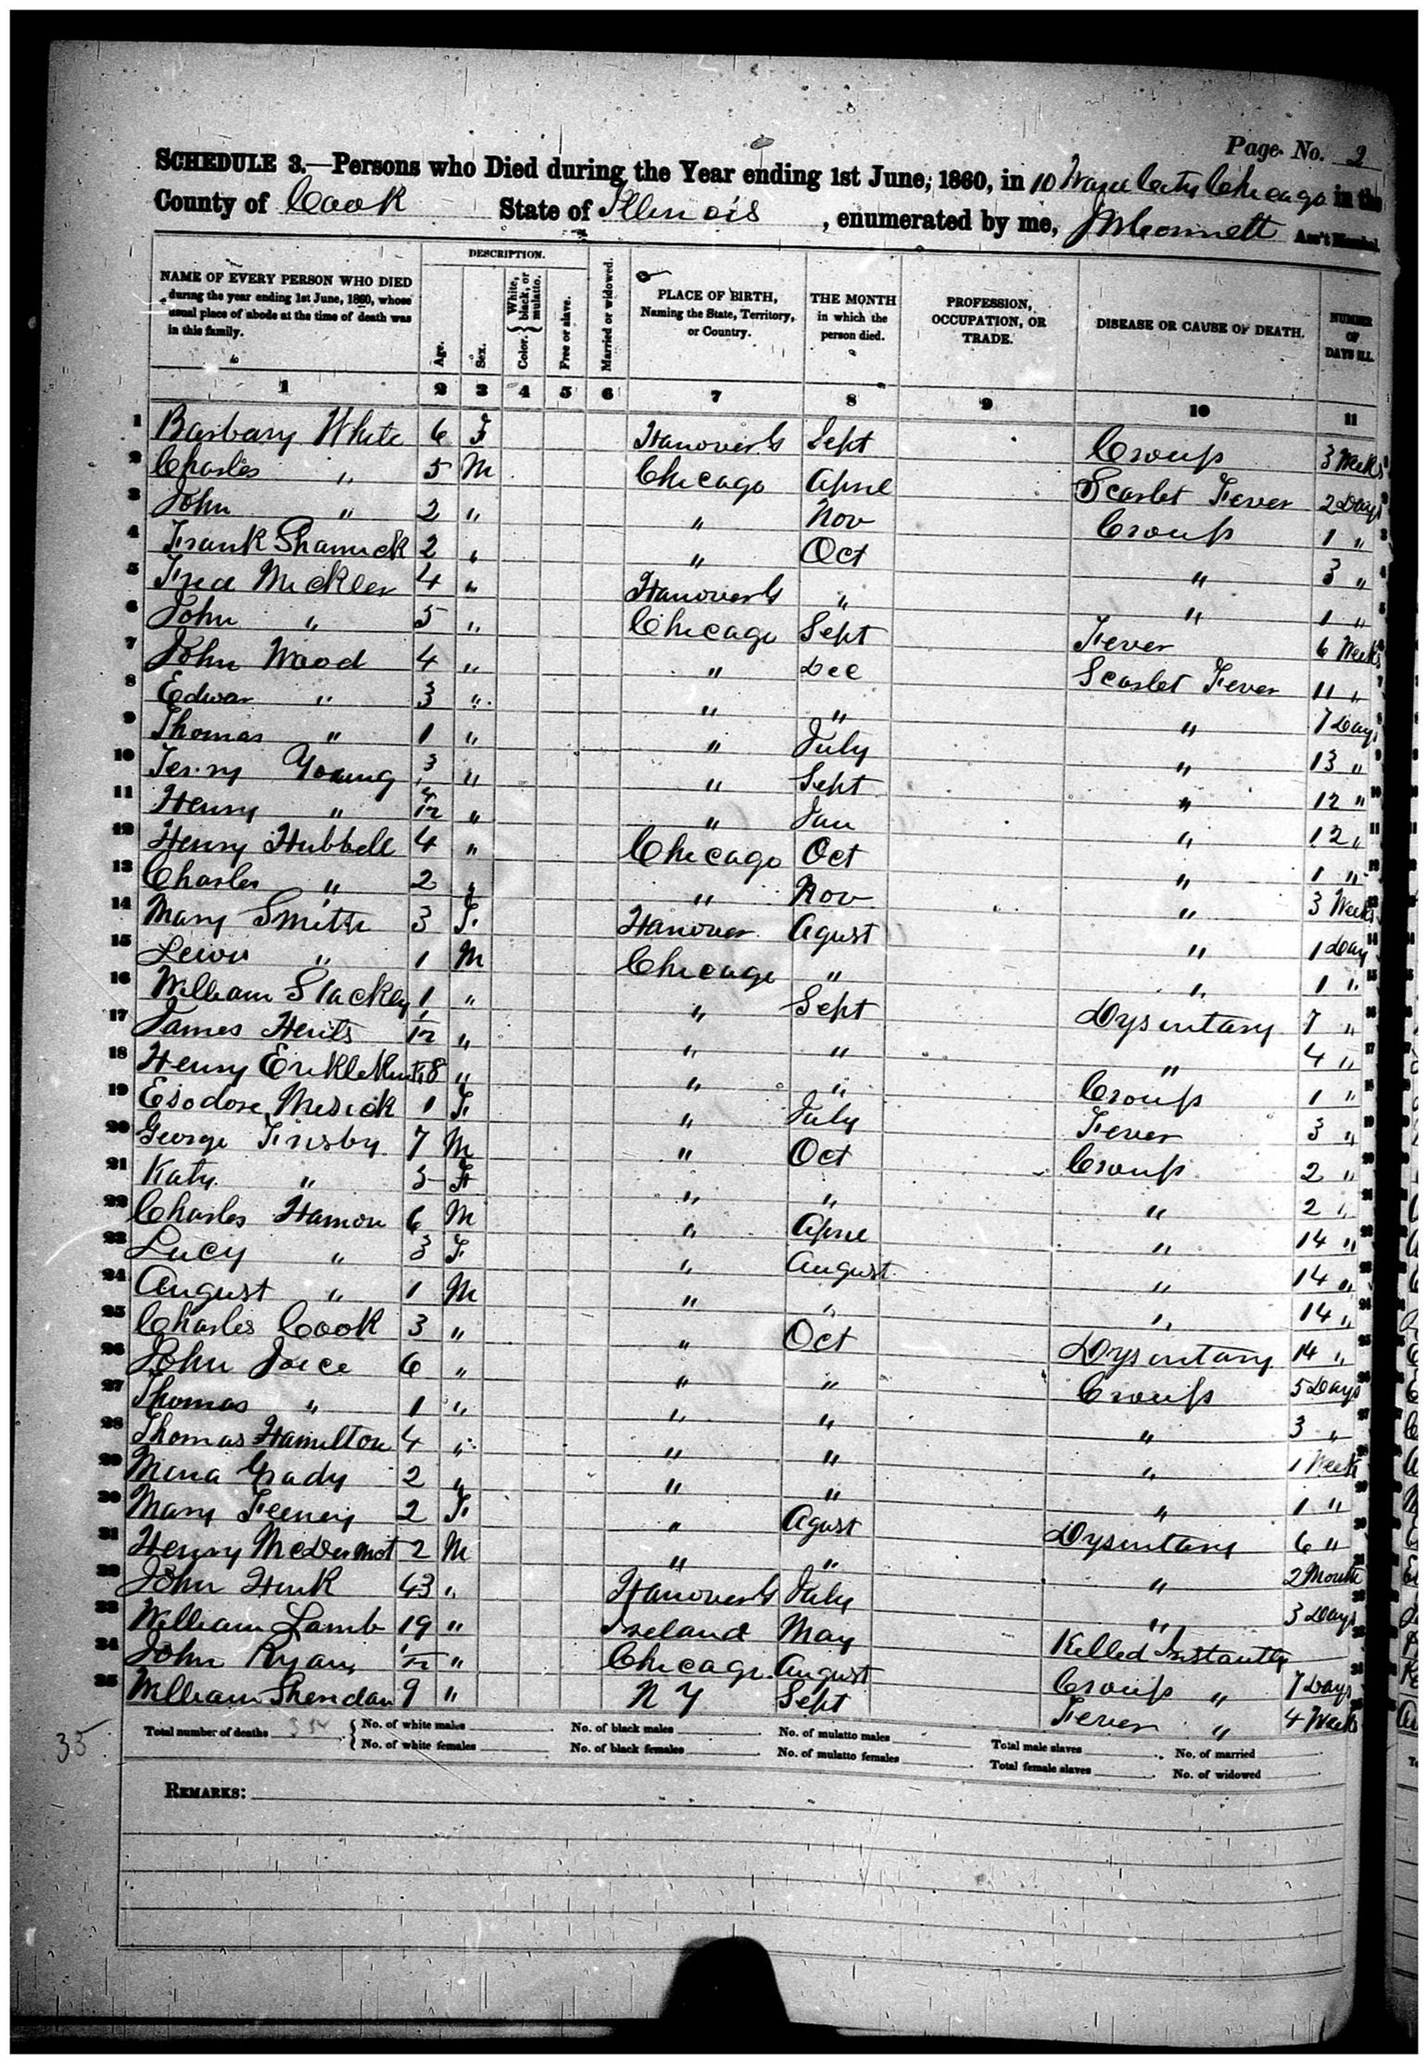 Page No. 2
SCHEDULE 3.—Persons who Died during the Year ending 1st June, 1860, in 10 Ward City Chicago in the
County of Cook State of Illinois, enumerated by me, Ass't Marshal.
NAME OF EVERY PERSON WHO DIED during the year ending 1st June, 1860, whose usual place of abode at the time of death was in this family.
DESCRIPTION.
Age.
Sex.
Color. { White, black, or mulatto.
Free or slave.
Married or widowed.
PLACE OF BIRTH, Naming the State, Territory, or Country.
THE MONTH in which the person died.
PROFESSION, OCCUPATION, OR TRADE.
DISEASE OR CAUSE OF DEATH.
NUMBER OF DAYS ILL.
1 2 3 4 5 6 7 8 9 10 11
1 Barbary White 6 F Hanover G Sept Croup 3 Weeks 1
2 Charles " 5 M Chicago Aprie Scarlet Fever 2 Days 2
3 John " 2 " " Nov Croup 1 " 3
4 Frank 2 " " Oct " 3 " 4
5 Fred Mickler 4 " Hanover G " " 1 " 5
6 John " 5 " Chicago Sept Fever 6 Weeks 6
7 John Wood 4 " " Dec Scarlet Fever 11 " 7
8 Edwar " 3 " " " " 7 Days 8
9 Thomas " 1 " " July " 13 " 9
10 Young 3 " " Sept " 12 " 10
11 Henry " " " Jan " 12 " 11
12 Henry Hubbell 4 " Chicago Oct " 1 " 12
13 Charles " 2 " " Nov " 3 Weeks 13
14 Mary Smith 3 F Hanover Agust " 1 Day 14
15 Lewis " 1 M Chicago " " 1 " 15
16 William Slackley 1 " " Sept Dysentary 7 " 16
17 James 1/12 " " " " 4 " 17
18 Henry 8 " " " Croup 1 " 18
19 Esodore Mesick 1 F " July Fever 3 " 19
20 George Finsby 7 M " Oct Croup 2 " 20
21 Katy " 3 F " " " 2 " 21
22 Charles Hamon 6 M " Aprie " 14 " 22
23 Lucy " 3 F " August " 14 " 23
24 August " 1 M " " " 14 " 24
25 Charles Cook 3 " " Oct Dysentary 14 " 25
26 John Joice 6 " " " Croup 5 Days 26
27 Thomas " 1 " " " " 3 " 27
28 Thomas Hamilton 4 " " " " 1 Week 28
29 Mina Grady 2 " " " " 1 " 29
30 Mary Feeney 2 F " Agust Dysentary 6 " 30
31 Henry McDermot 2 M " " " 2 Month 31
32 John Hink 43 " Hanover G July " 3 Days 32
33 William Lamb 19 " Ireland May Killed Instantly 33
34 John Ryan 1/12 " Chicago August Croup " 7 Days 34
35 William Sheridan 9 " N Y Sept Fever " 4 Weeks
35
Total number of deaths { No. of white males No. of black males No. of mulatto males Total male slaves No. of married
{ No. of white females No. of black females No. of mulatto females Total female slaves No. of widowed
REMARKS: